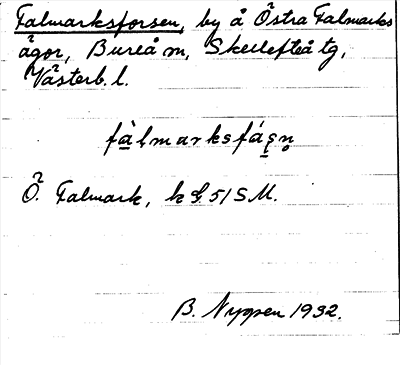 Falmarksforsen, by å Östra Falmarks
ägor, Bureå m, Skellefteå tg,
Västerb. l.
fàlmarksfáşn̥
Ö. Falmark, k 51 SM.
B. Nygren 1932.